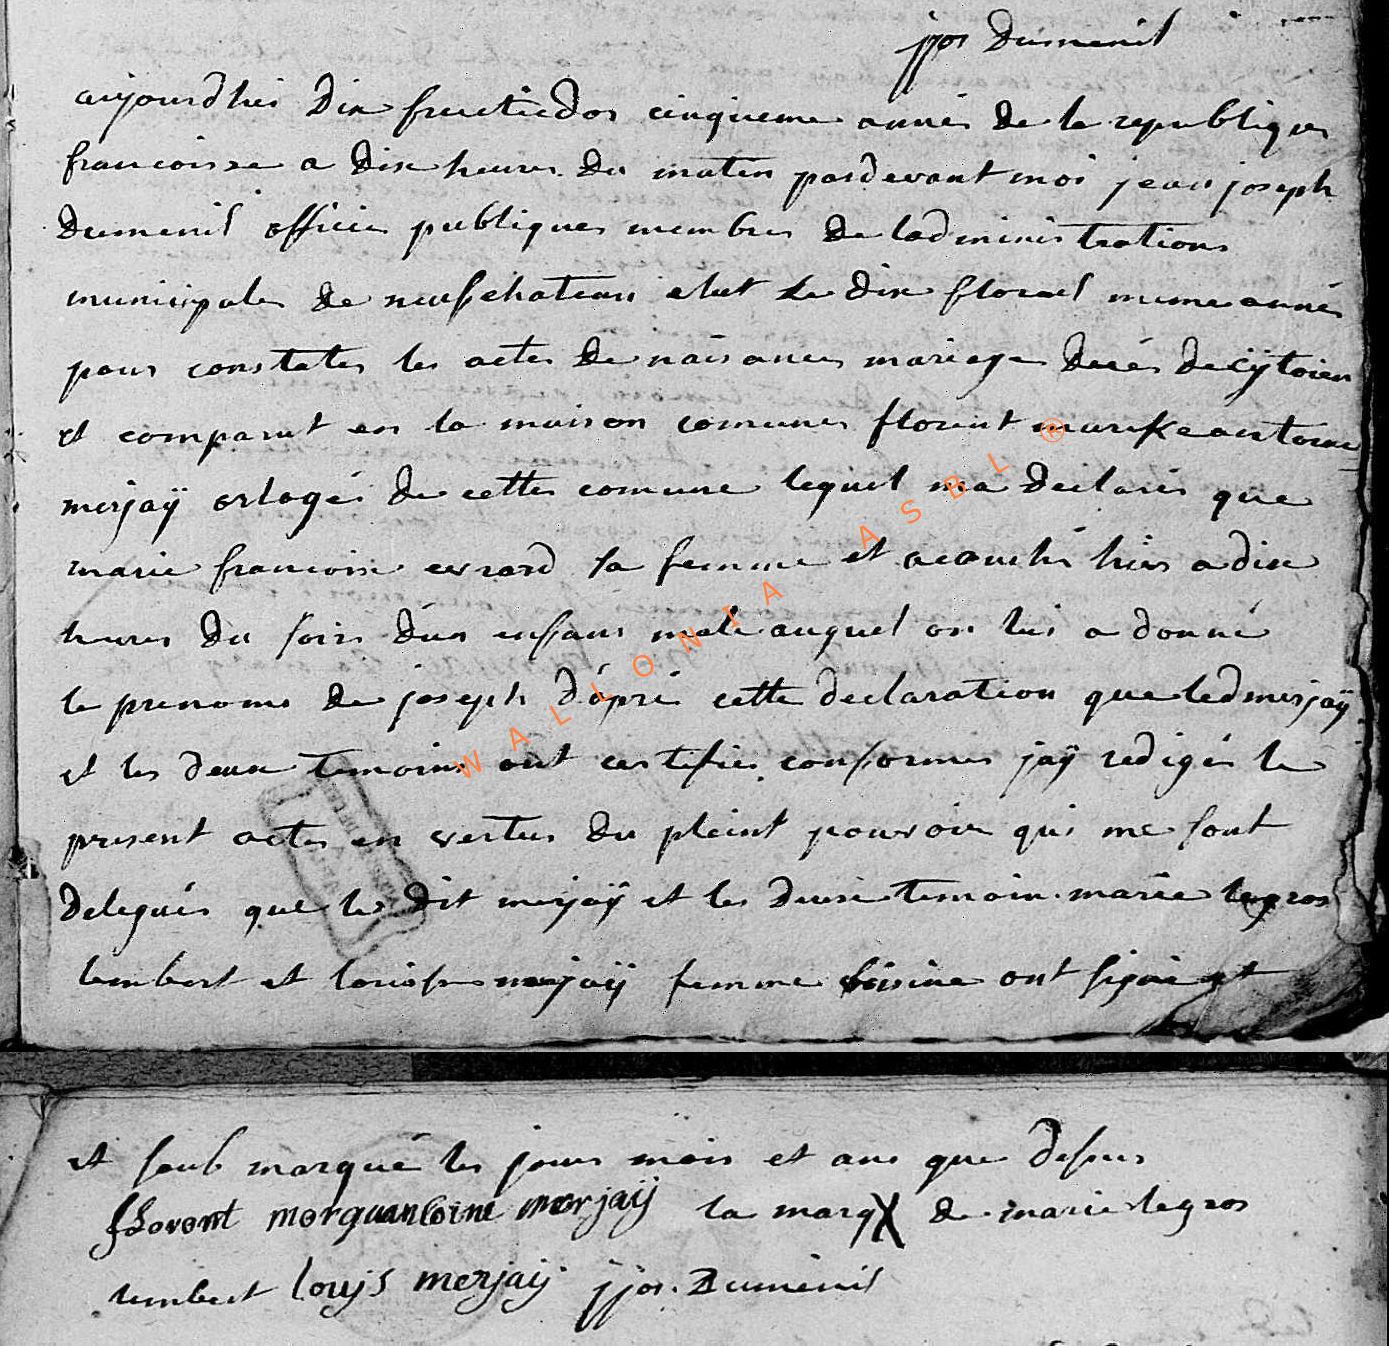 jjos Dumenil
aujourdhui Dix fructidor cinquieme anneé De la republiques
francoisse a Dix heures Du maten pardevant moi jean joseph
Dumenil officié publiques membres De ladministrations
municipales De neufchateau elut Le dix floreal mume anneé
pour constater les actes De naisances mariages Decés De Cÿtoien
et comparut en la maison comune florent mark antoine
merjaÿ orlogé de cette comune lequel ma Declarés que
marie francoise evrard sa femme et acouché hier a dix
heures Du soire dún enfans male auquel on lui a donné
le prenoms de joseph dápré cette declaration que led merjaÿ
et les deux temoins ont certifié conformes jaÿ redigés le
present acte en vertus Du pleint pouvoir qui me sont
Delegués que le dit merjaÿ et les deuxe temoin marie legros
lembert et louise merjaÿ femme ont signé et
et soub marqué les jours mois et ans que desus
fLorent morquantoine merjaÿ la marq X de marie legros
lembert loujs merjaÿ jjos. Dumenil
WALLONIA ASBL ®